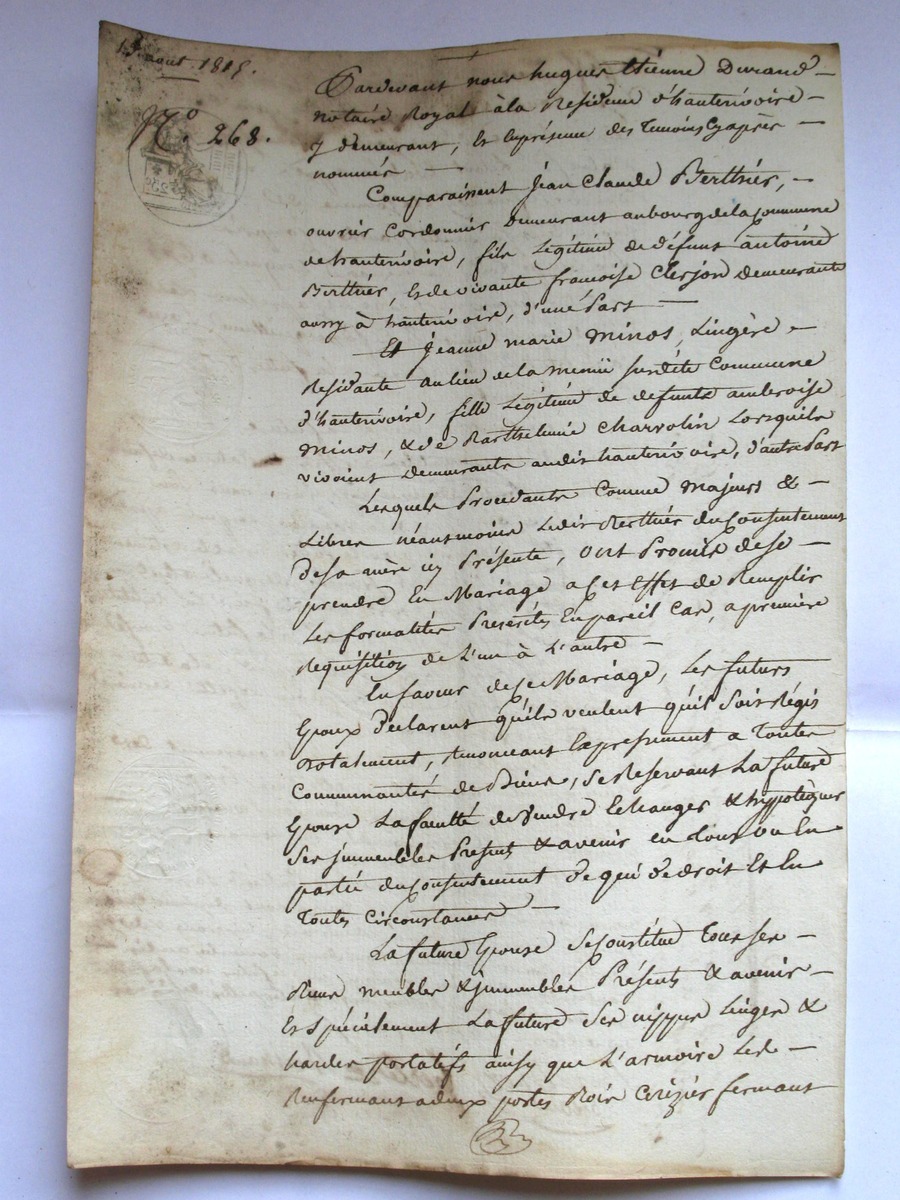 aout 1815.
N.º 268.
Pardevant nous hugues Etienne Durand
notaire Royal à la Residence d'hauterivoire
y demeurant, et En présence des Temoins Cyaprès
nommés
Comparaissent jean Claude Berthier,
ouvrier Cordonnier Demeurant au bourg de la Commune
de hauterivoire, fils Légitime de défunt antoine
Berthier, et de vivante francoise Clerjon demeurante
aussy à hauterivoire, d'une Part
Et jeanne marie minos, Lingère
Residante au lieu de la menü susdite Commune
d'hauterivoire, fille Légitime de defunts ambroise
minos, & de Barthelmie Charvolin Lorsquils
vivoient demeurants audit hauterivoire, d'autre Part
Lesquels Procedants Comme majeurs &
Libres néanmoins Ledit Berthier du Consentement
de sa mère icy Présente, ont Promis de se
prendre En Mariage a Cet Effet de Remplir
Les formalités Prescrites En pareil Cas, a première
Requisition de L'un à L'autre
En faveur de Ce Mariage, Les futurs
Epoux Déclarent qu'ils veulent qu'il Soit Régis
Dotalement, Renoncant Expressement a Toutes
Communautés de Biens, Se Reservant La future
Epouse La faculté de Vendre Echanger & hypotèquer
Ses immeubles Present & avenir en Tout ou En
partie du Consentement de qui de droit Et En
Toutes Circonstances
La future Epouse Se Constitue Tous ses
Biens meubles & immeubles Présents & avenir
Et Spécialement La future Ses nippes Linges &
hardes portatifs ainsy que L'armoire Les
Renfermant a deux portes Bois Cerizier fermant